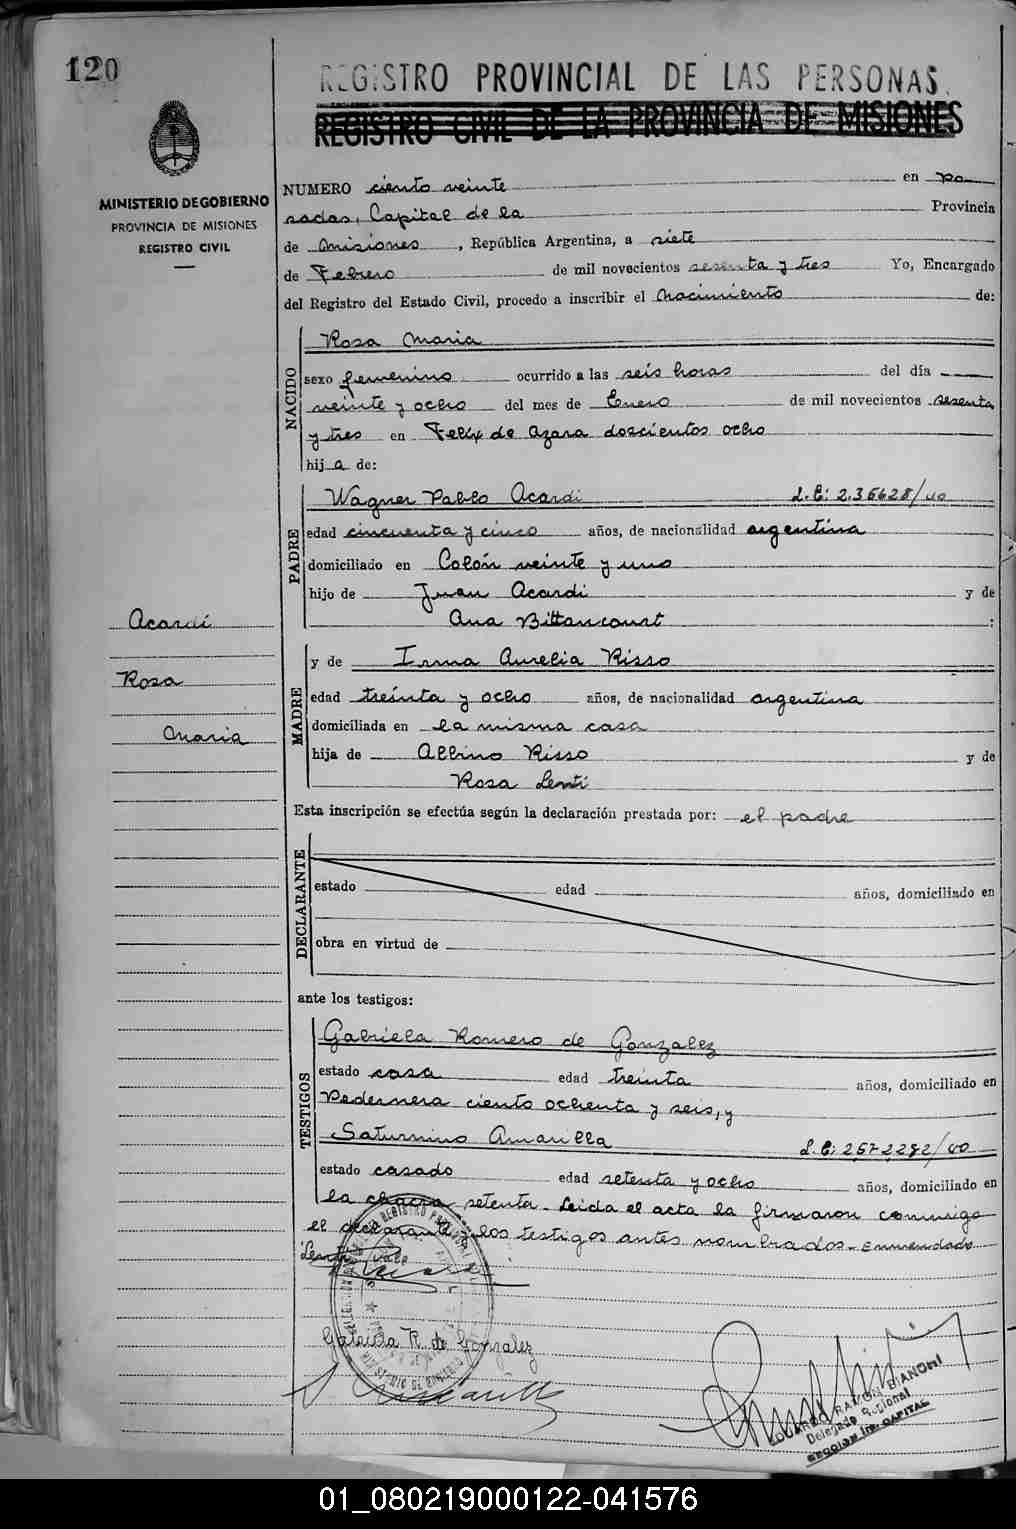 120
REGISTRO PROVINCIAL DE LAS PERSONAS.
REGISTRO CIVIL DE LA PROVINCIA DE MISIONES
MINISTERIO DE GOBIERNO
PROVINCIA DE MISIONES
REGISTRO CIVIL
NUMERO ciento veinte en Po
sadas, Capital de la Provincia
de Misiones, República Argentina, a siete
de Febrero de mil novecientos sesenta y tres Yo, Encargado
del Registro del Estado Civil, procedo a inscribir el Nacimiento de:
NACIDO
Rosa Maria
sexo femenino ocurrido a las seis horas del día
veinte y ocho del mes de Enero de mil novecientos sesenta
y tres en Felix de Azara doscientos ocho
hija de:
PADRE
Wagner Pablo Acardi L.E: 2.356.628/00
edad cincuenta y cinco años, de nacionalidad argentina
domiciliado en Colón veinte y uno
hijo de Juan Acardi y de
Ana Bittancourt :
Acardi
Rosa
Maria
MADRE
y de Irma Aurelia Risso
edad treinta y ocho años, de nacionalidad argentina
domiciliada en la misma casa
hija de Albino Risso y de
Rosa Lenti
Esta inscripción se efectúa según la declaración prestada por: el padre
DECLARANTE
estado edad años, domiciliado en
obra en virtud de
ante los testigos:
TESTIGOS
Gabriela Romero de Gonzalez
estado casa edad treinta años, domiciliado en
Pedernera ciento ochenta y seis, y
Saturnino Amarilla L.E: 2572282/00
estado casado edad setenta y ocho años, domiciliado en
la chacra setenta. Leida el acta la firmaron conmigo
el declarante y los testigos antes nombrados. Enmendado
Lenti vale
Gabriela R. de Gonzalez
EDUARDO RAMON BIANCHI
Delegado Regional
SECCION 1ra. CAPITAL
01_080219000122-041576